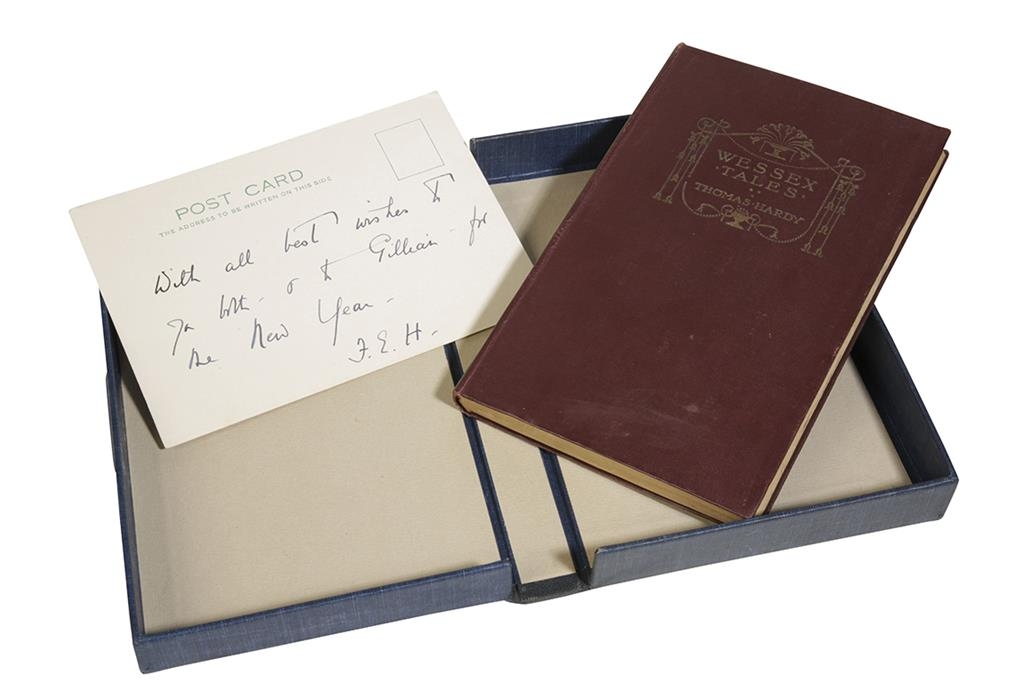 POST CARD
THE ADDRESS TO BE WRITTEN ON THIS SIDE
With all best wishes to
you both - & to Gillian - for
the New Year -
F. E. H -
WESSEX
·TALES·
THOMAS·HARDY